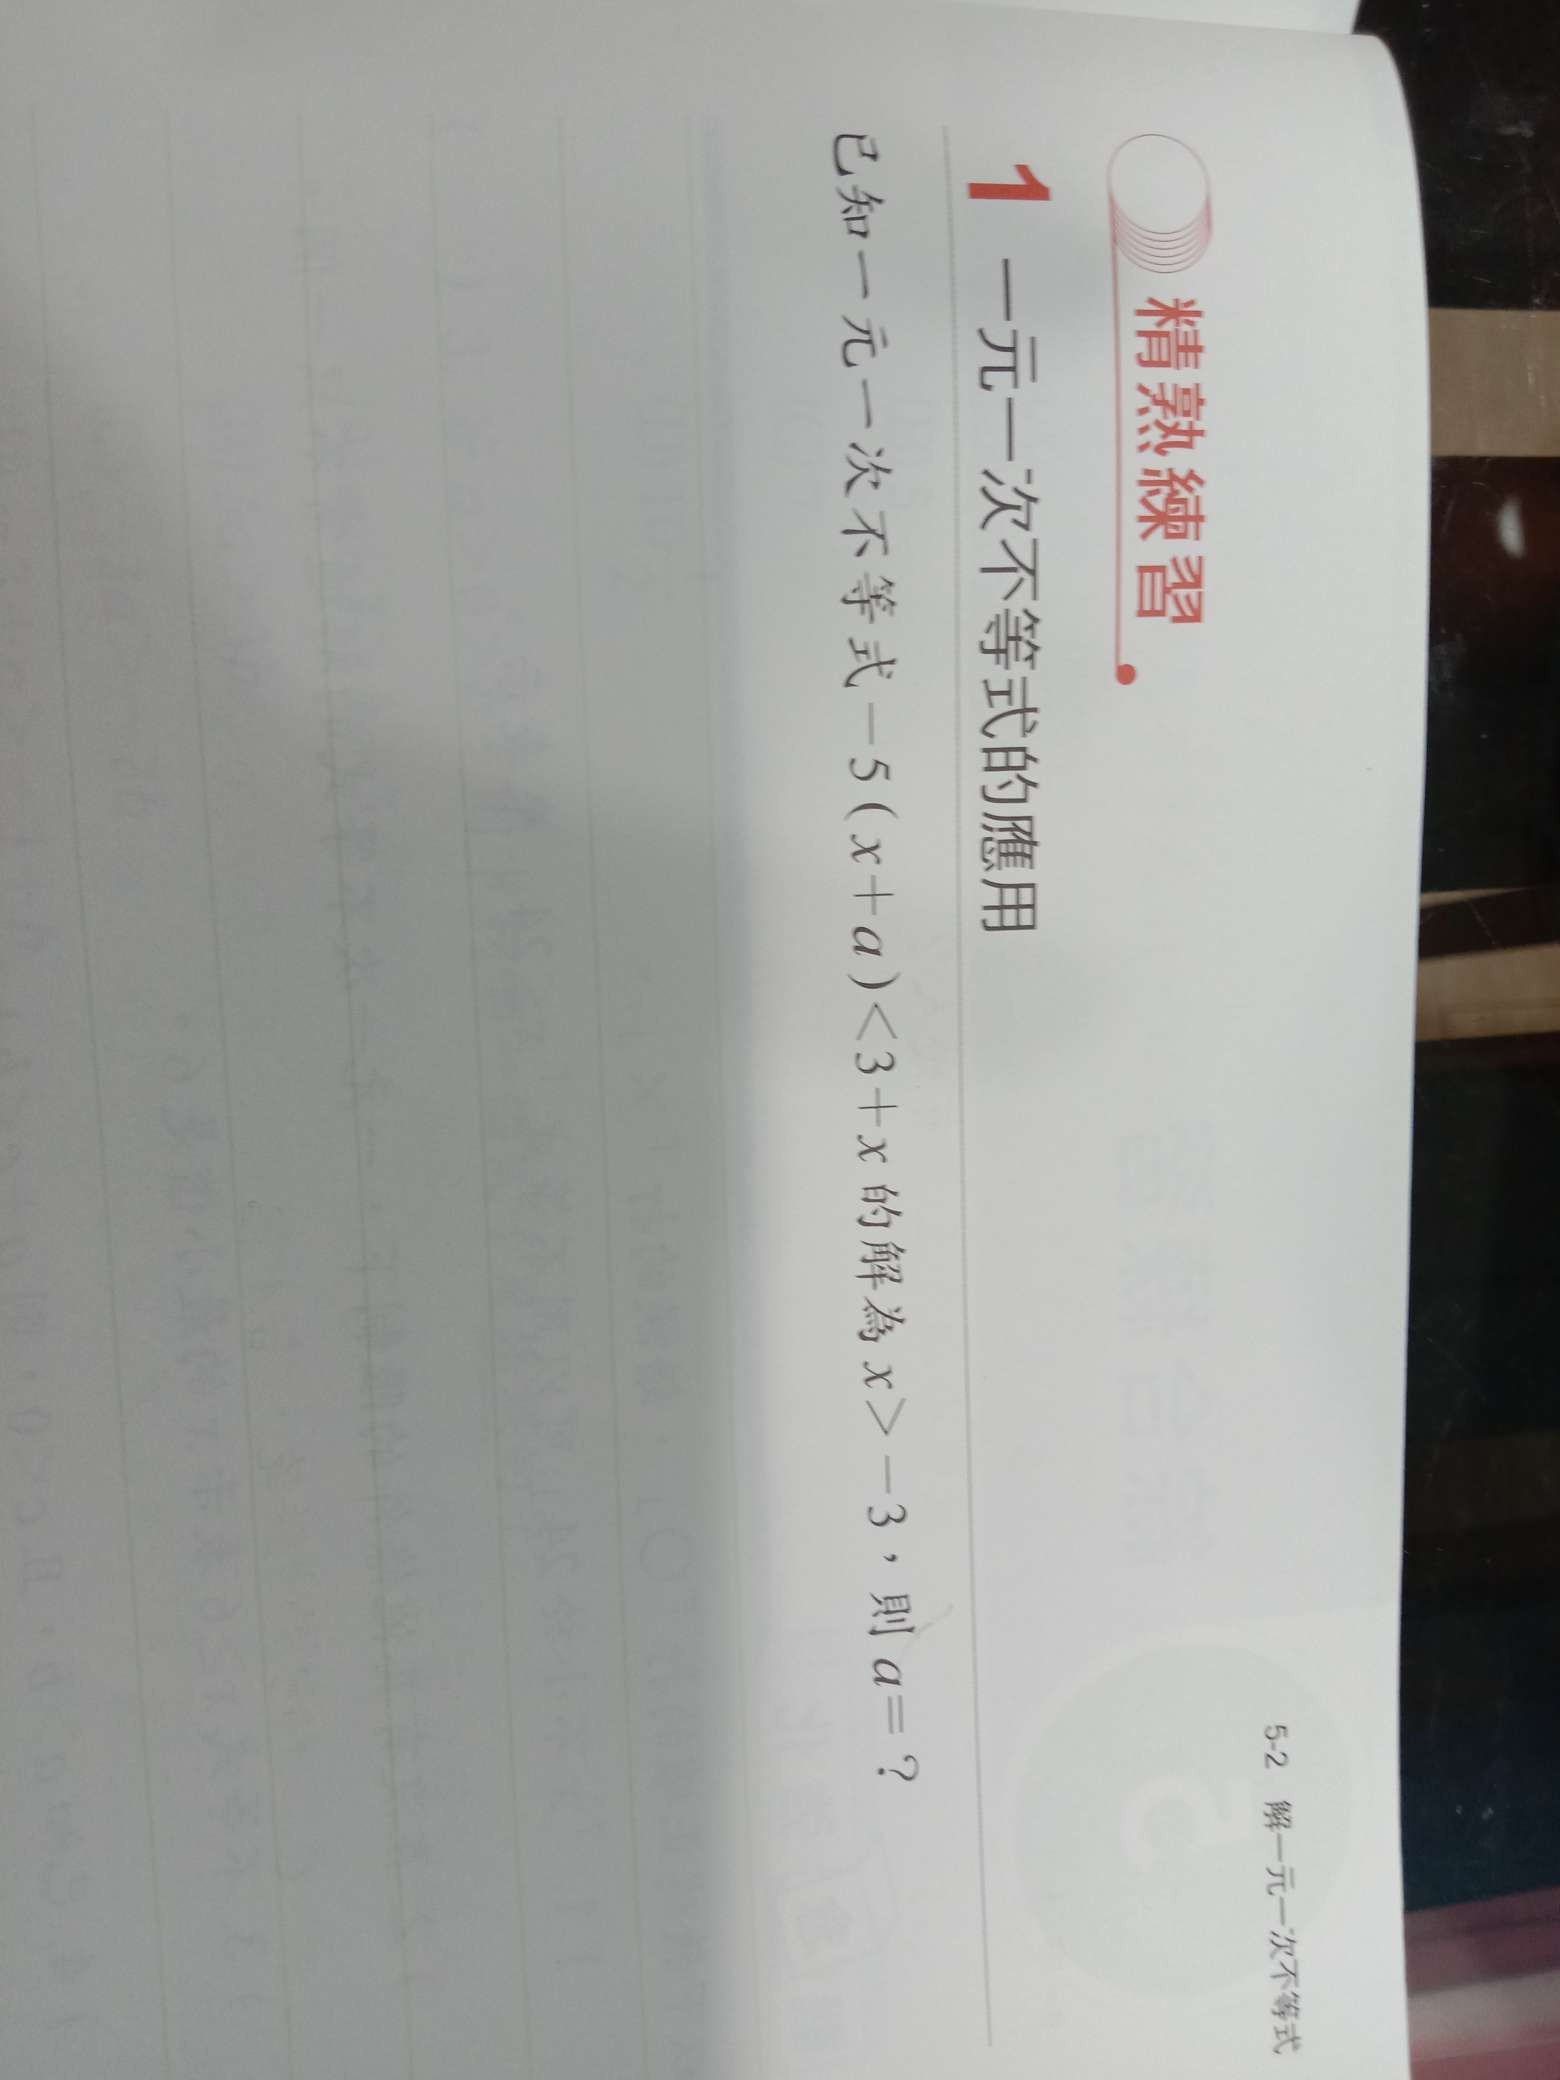 5-2 解一元一次不等式
精熟練習
1 一元一次不等式的應用
已知一元一次不等式－5(x＋a)＜3＋x的解為x＞－3，則a＝？